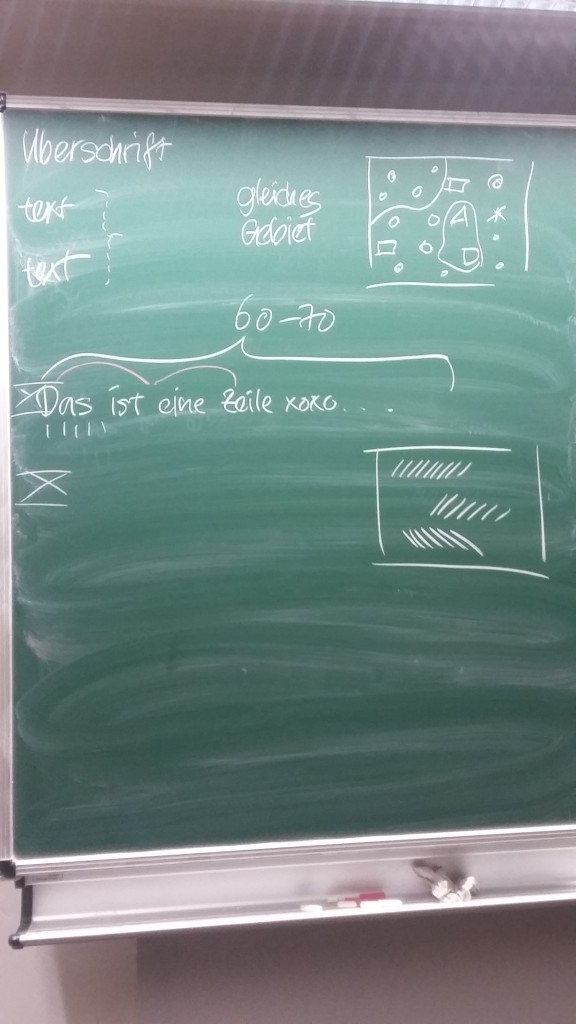 Überschrift
text
text
gleiches
Gebiet
60-70
Das ist eine Zeile xoxo....